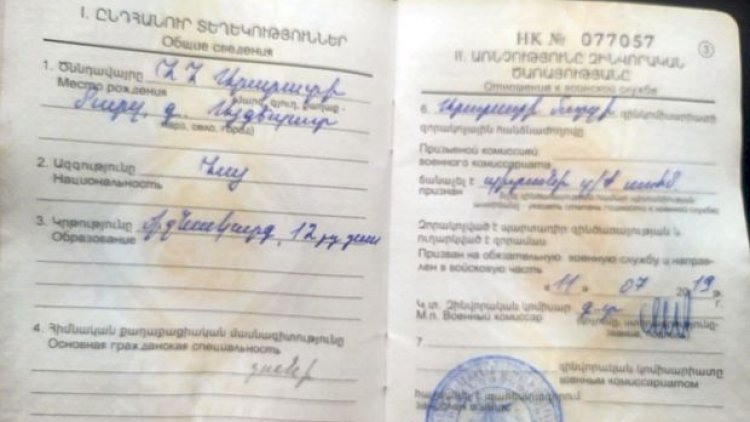 I. ԸՆԴՀԱՆՈՒՐ ՏԵՂԵԿՈՒԹՅՈՒՆՆԵՐ
Общие сведения
1. Ծննդավայրը ՀՀ Արարատի
Место рождения
մարզ, գ. Այգեզարդ
2. Ազգությունը Հայ
Национальность
3. Կրթությունը միջնակարգ, 12
Образование
4. Հիմնական քաղաքացիական մասնագիտությունը
Основная гражданская специальность
չունի
НК № 077057
3
II. ԱՌՆՉՈՒԹՅՈՒՆԸ ԶԻՆՎՈՐԱԿԱՆ
ԾԱՌԱՅՈՒԹՅԱՆԸ
Отношение к воинской службе
6. Արարատի մարզի զինկոմիսարիատի
զորակոչային հանձնաժողովը
Призывной комиссией
военного комиссариата
ճանաչել է պիտանի
признан
Զորակոչված է պարտադիր զինծառայության և
ուղարկված է զորամաս
Призван на обязательную военную службу и направ-
лен в войсковую часть
«11» 07 2019 թ.
Կ.տ. Զինվորական կոմիսար
М.п. Военный комиссар
7
զինվորական կոմիսարիատը
военным комиссариатом